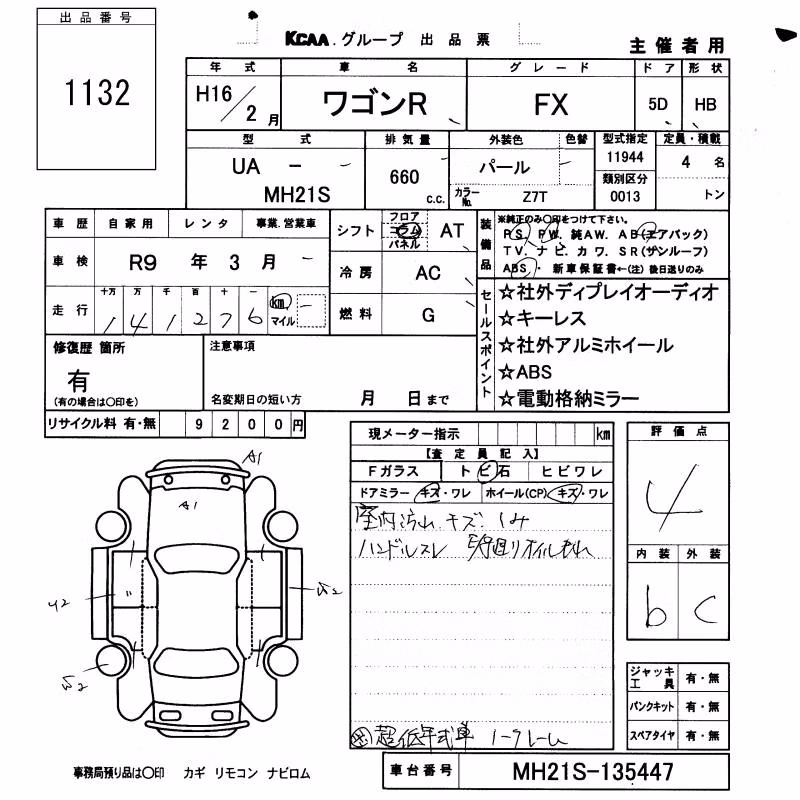 出品番号
1132
KCAA.グループ 出品票
主催者用
年式 車名 グレード ドア 形状
H16/2月 ワゴンR FX 5D HB
型式 排気量 外装色 色替 型式指定 定員・積載
UA - MH21S 660 c.c. パール 11944 4 名
カラーNo. Z7T 類別区分 0013 トン
車歴 自家用 レンタ 事業.営業車
シフト フロア コラム パネル AT
装備品 ※純正のみ〇印をつけて下さい。
PS. PW. 純AW. AB(エアバック)
TV. ナビ. カワ. SR(サンルーフ)
ABS・ 新車保証書←(注) 後日送りのみ
車検 R9 年 3 月
冷房 AC
走行 十万 万 千 百 十 一
1 4 1 2 7 6 km マイル
燃料 G
セールスポイント
☆社外ディプレイオーディオ
☆キーレス
☆社外アルミホイール
☆ABS
☆電動格納ミラー
修復歴 箇所
有
(有の場合は〇印を)
注意事項
名変期日の短い方 月 日まで
リサイクル料 有・無 9200円
現メーター指示 km
【査定員記入】
Fガラス トビ石 ヒビワレ
ドアミラー キズ・ワレ ホイール(CP) キズ・ワレ
室内汚れ キズ.
ハンドルスレ
超低年式車 ノークレーム
評価点
4
内装 外装
b C
A1
A1
U2
ジャッキ工具 有・無
パンクキット 有・無
スペアタイヤ 有・無
事務局預り品は〇印 カギ リモコン ナビロム
車台番号 MH21S-135447